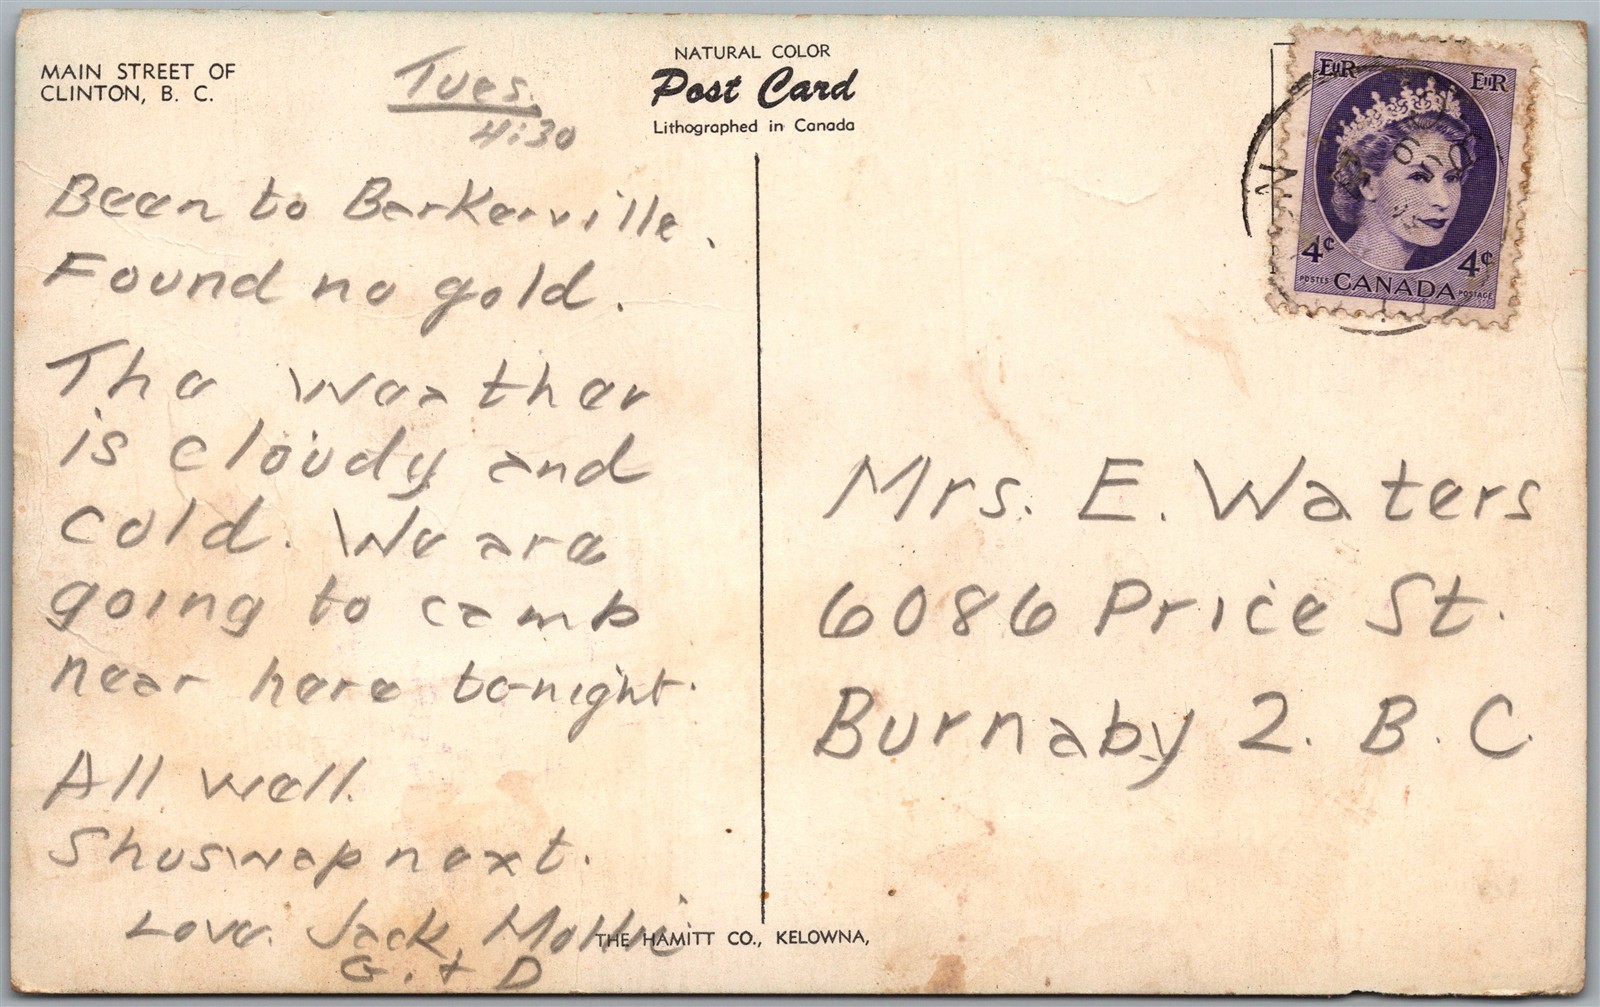 MAIN STREET OF
CLINTON, B. C.
Tues.
4:30
NATURAL COLOR
Post Card
Lithographed in Canada
Been to Barkerville.
Found no gold.
The weather
is cloudy and
cold. We are
going to camp
near here to-night.
All well.
Shuswap next.
Love. Jack, Mollie
G. & D
THE HAMITT CO., KELOWNA,
EIIR EIIR
4¢ 4¢
POSTES CANADA POSTAGE
Mrs. E. Waters
6086 Price St.
Burnaby 2. B. C.